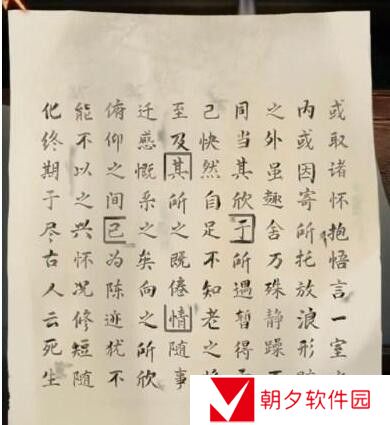 或取诸怀抱悟言一室
内或因寄所托放浪形
之外虽趣舍万殊静躁
同当其欣于所遇暂得
己快然自足不知老之
至及其所之既倦情随事
迁感慨系之矣向之所欣
俯仰之间已为陈迹犹不
能不以之兴怀况修短随
化终期于尽古人云死生
朝夕软件园